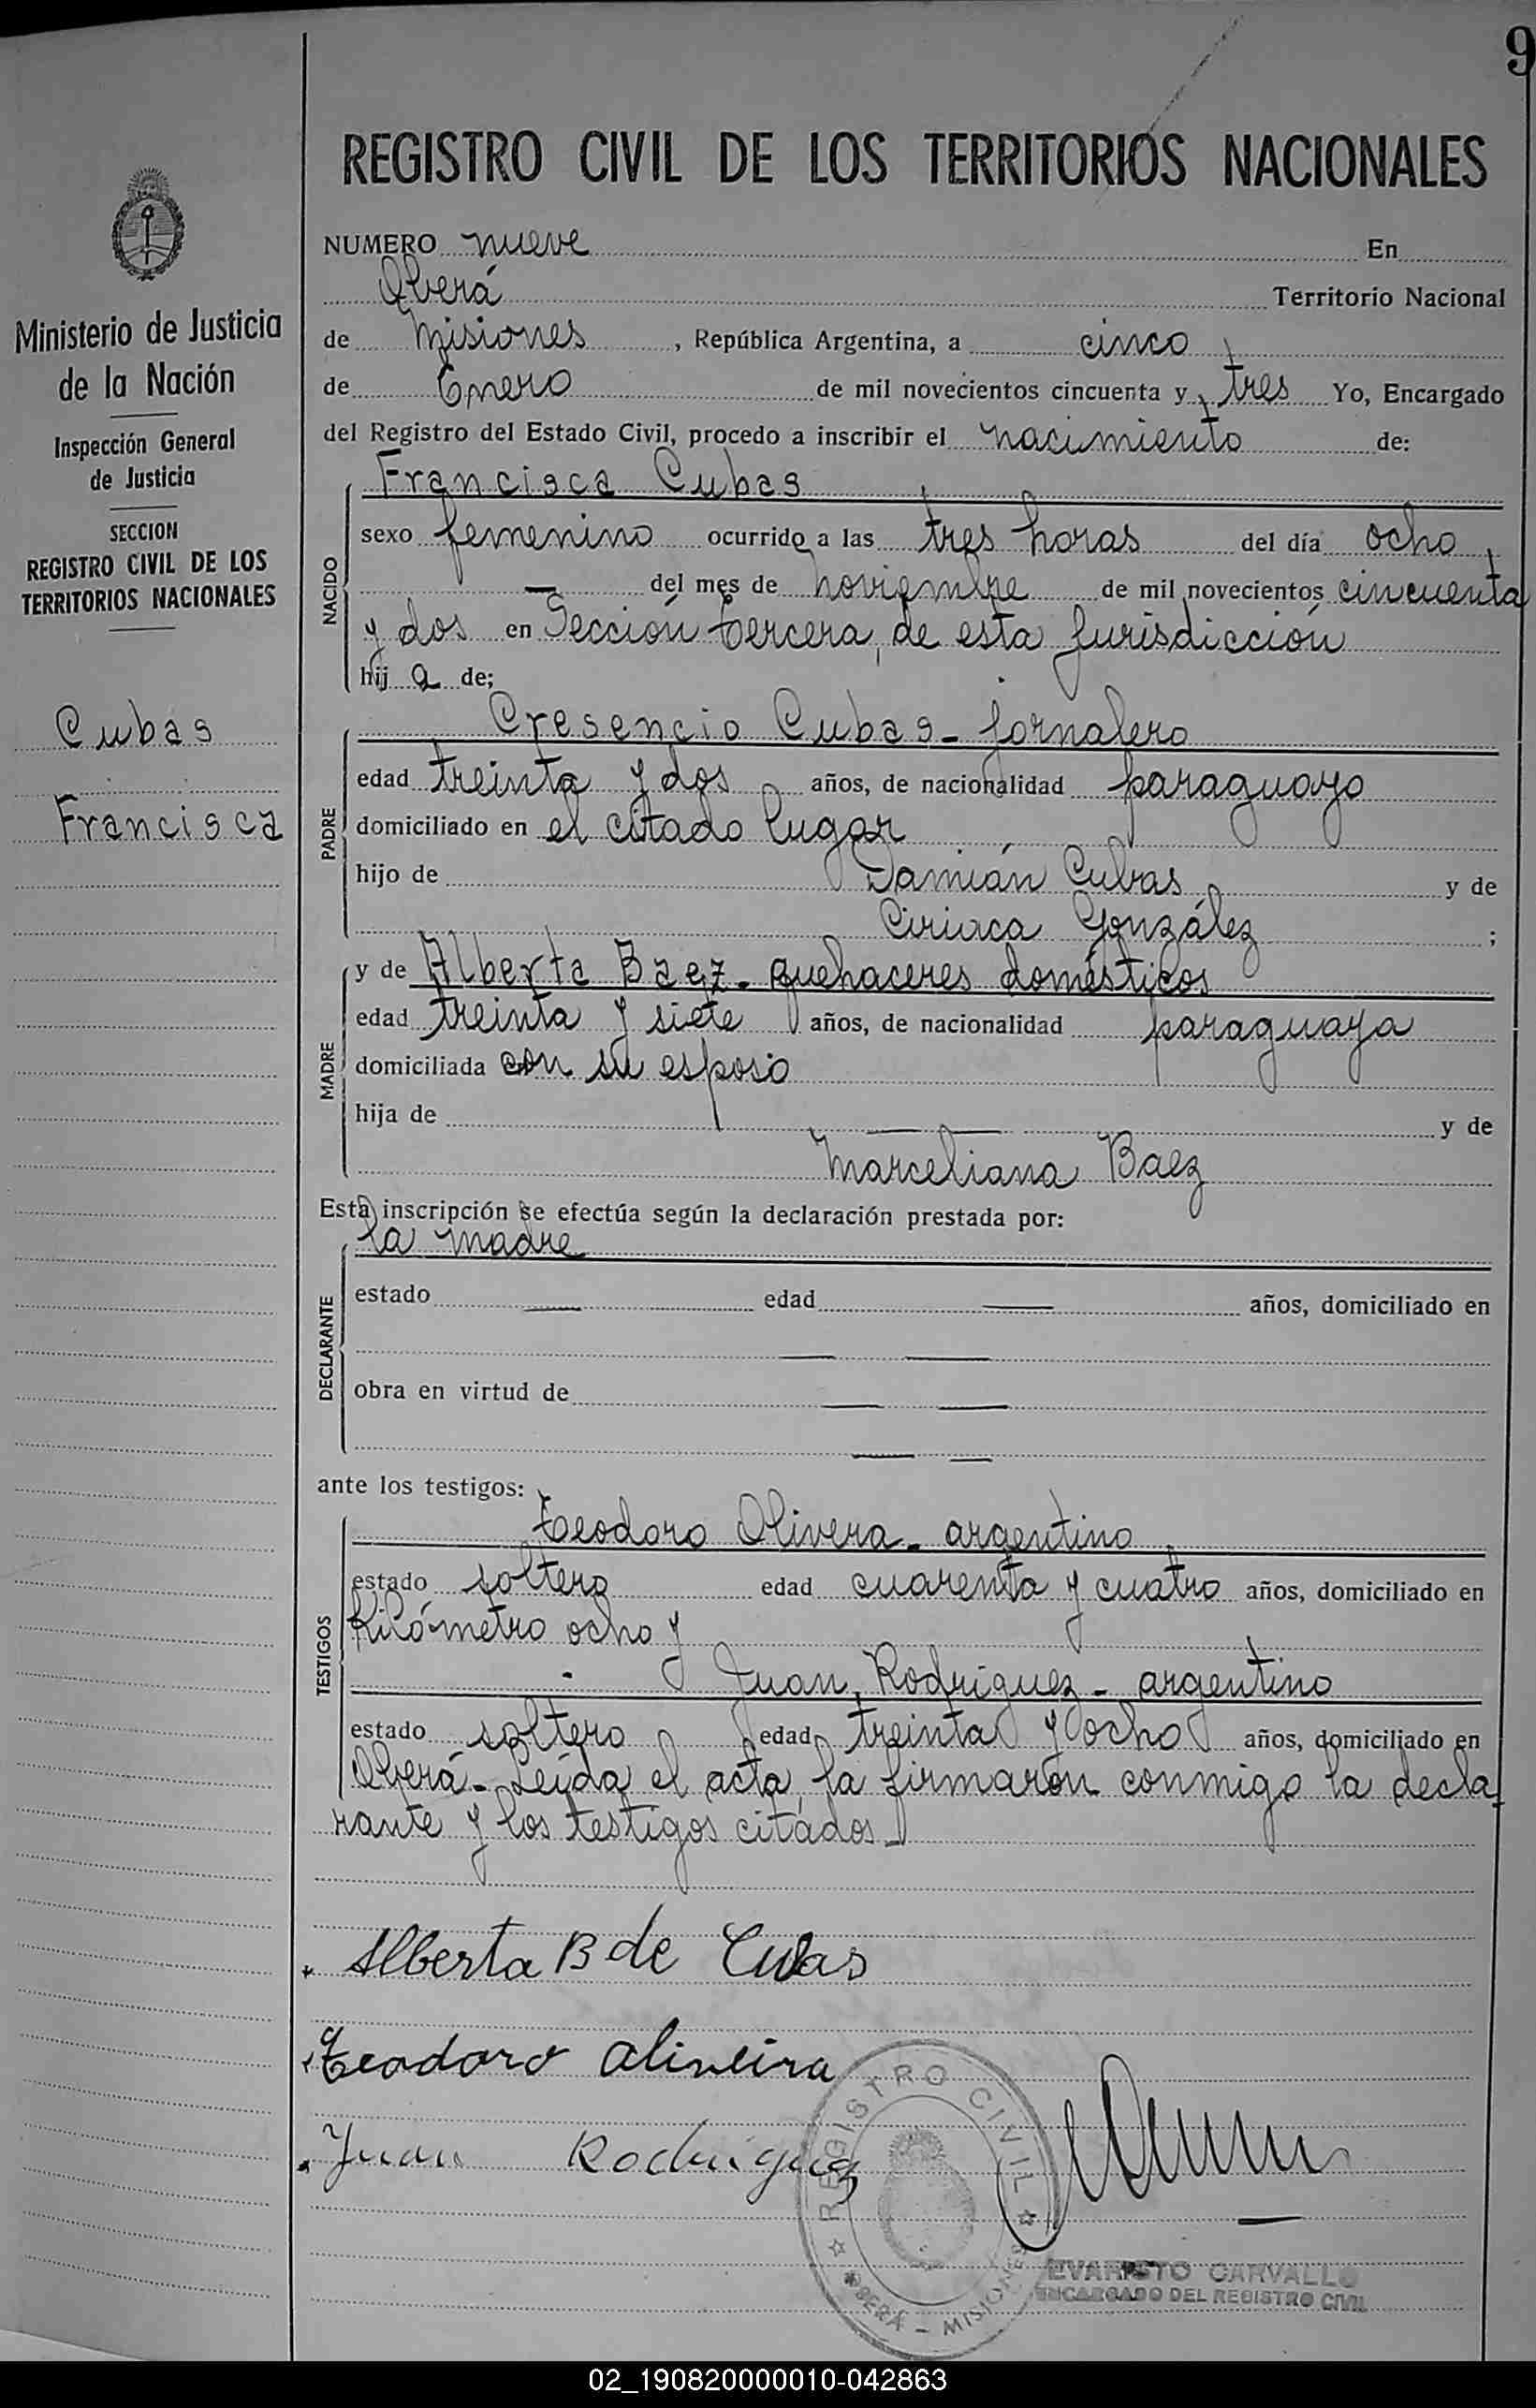 9
REGISTRO CIVIL DE LOS TERRITORIOS NACIONALES
Ministerio de Justicia
de la Nación
Inspección General
de Justicia
SECCION
REGISTRO CIVIL DE LOS
TERRITORIOS NACIONALES
Cubas
Francisca
NUMERO nueve En
Oberá Territorio Nacional
de Misiones , República Argentina, a cinco
de Enero de mil novecientos cincuenta y tres Yo, Encargado
del Registro del Estado Civil, procedo a inscribir el nacimiento de:
Francisca Cubas
NACIDO
sexo femenino ocurrido a las tres horas del día ocho
— del mes de noviembre de mil novecientos cincuenta
y dos en Sección tercera, de esta jurisdicción
hij a de;
Cresencio Cubas - jornalero
PADRE
edad treinta y dos años, de nacionalidad paraguayo
domiciliado en el citado lugar
hijo de Damián Cubas y de
Ciriaca González ;
MADRE
y de Alberta Baez - quehaceres domésticos
edad treinta y siete años, de nacionalidad paraguaya
domiciliada con su esposo
hija de — — y de
Marceliana Baez
Esta inscripción se efectúa según la declaración prestada por:
la madre
DECLARANTE
estado — edad — años, domiciliado en
— —
obra en virtud de — —
— —
ante los testigos:
Teodoro Olivera - argentino
TESTIGOS
estado soltero edad cuarenta y cuatro años, domiciliado en
Kilómetro ocho y
Juan Rodriguez - argentino
estado soltero edad treinta y ocho años, domiciliado en
Oberá - Leída el acta, la firmaron conmigo la decla
rante y los testigos citados -
Alberta B de Cubas
Teodoro Oliveira
Juan Rodriguez
REGISTRO CIVIL
OBERÁ - MISIONES
EVARISTO CARVALLO
ENCARGADO DEL REGISTRO CIVIL
02_190820000010-042863